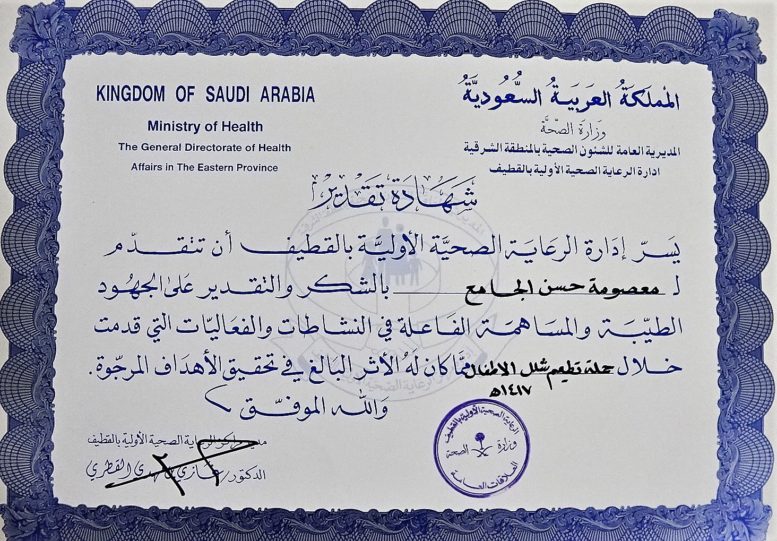 KINGDOM OF SAUDI ARABIA
Ministry of Health
The General Directorate of Health
Affairs in The Eastern Province
المملكة العربية السعودية
وزارة الصحة
المديرية العامة للشئون الصحية بالمنطقة الشرقية
ادارة الرعاية الصحية الأولية بالقطيف
شهادة تقدير
يسر إدارة الرعاية الصحية الأولية بالقطيف أن تتقدم
لـ معصومة حسن الجامع بالشكر والتقدير على الجهود
الطيبة والمساهمة الفاعلة في النشاطات والفعاليات التي قدمت
خلال حملة تطعيم شلل الاطفال مما كان له الأثر البالغ في تحقيق الأهداف المرجوة.
١٤١٧هـ
والله الموفق
الرعاية الصحية الأولية بالقطيف
وزارة الصحة
العلاقات العامة
مدير مراكز الرعاية الصحية الأولية بالقطيف
الدكتور/ غازي القطري